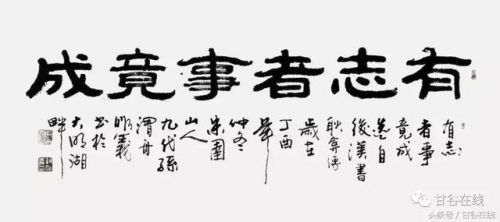 有志者事竟成
有志
者事
竟成
選自
後漢書
耿弇傳
歲在
丁酉
年
仲冬
朱圉
山人
九代孫
渭舟
義
书於
大明湖
畔
甘谷在线
头条号 / 甘谷在线